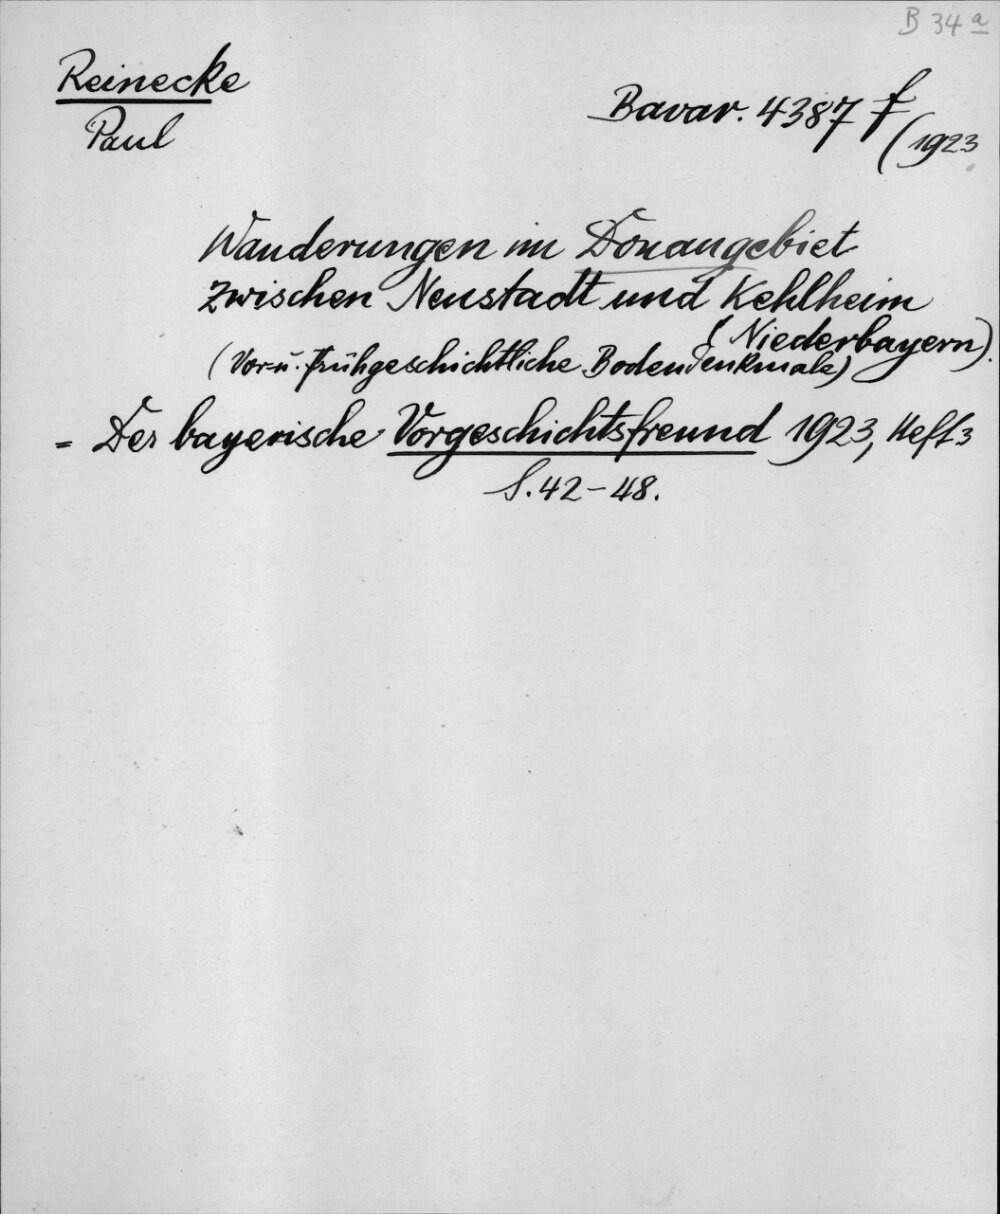 B 34 a
Reinecke
Paul
Bavar. 4387 f
(1923
Wanderungen im Donaugebiet
zwischen Neustadt und Kehlheim
(Niederbayern).
(Vor- u. frühgeschichtliche Bodendenkmale)
= Der bayerische Vorgeschichtsfreund 1923, Heft 3
S. 42-48.